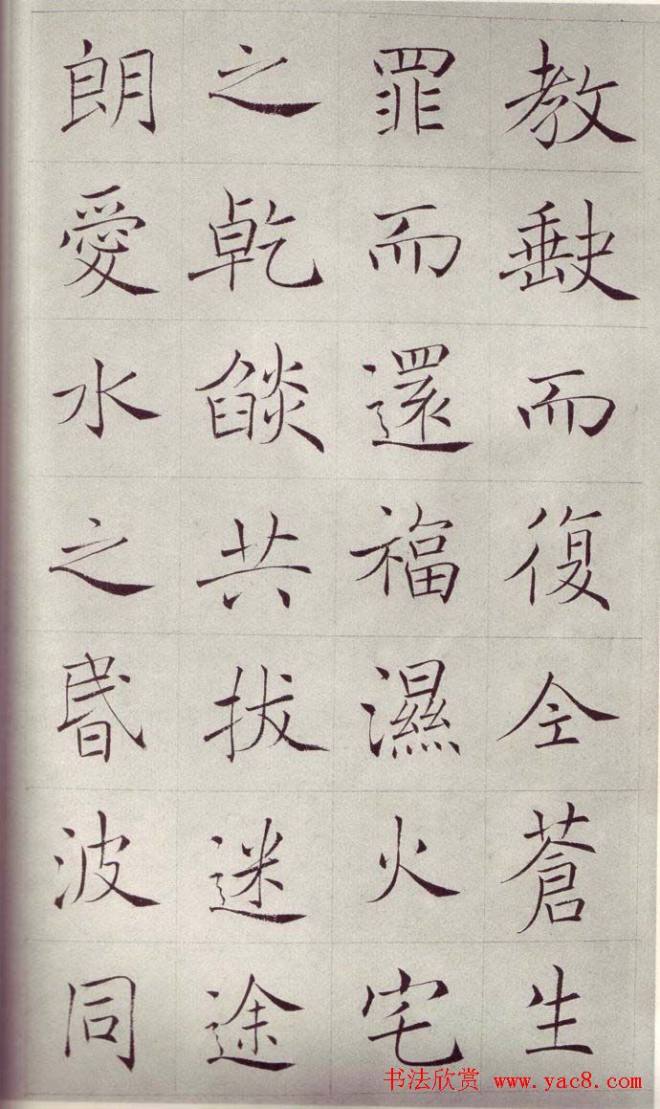 教缺而復全蒼生
罪而還福濕火宅
之乾燄共拔迷途
朗愛水之昬波同
书法欣赏 www.yac8.com